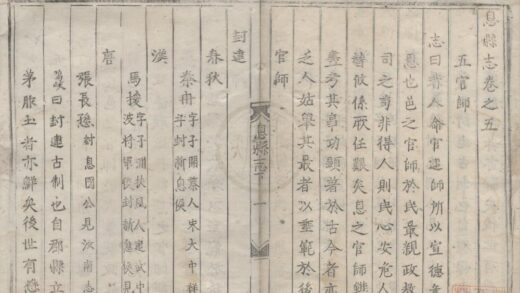 息縣志卷之五
五官師
志曰昔人命官建師所以宣德
惠也邑之官師於民最親政教
司之苟非得人則民心安危人
攸係厥任艱矣息之官師
盡考其章功顯著於古今者亦
之人姑舉其最者以垂範於後
官師
息縣志下 一
封建
春秋
秦冉 字子開蔡人宋大中祥
符年封新息侯
漢
馬援 字子淵扶風人建武中
波將軔後封新息侯見
唐
張長 封息國公見汝南
曰封建古制也自郡縣立
茅胙土者亦鮮矣後世有